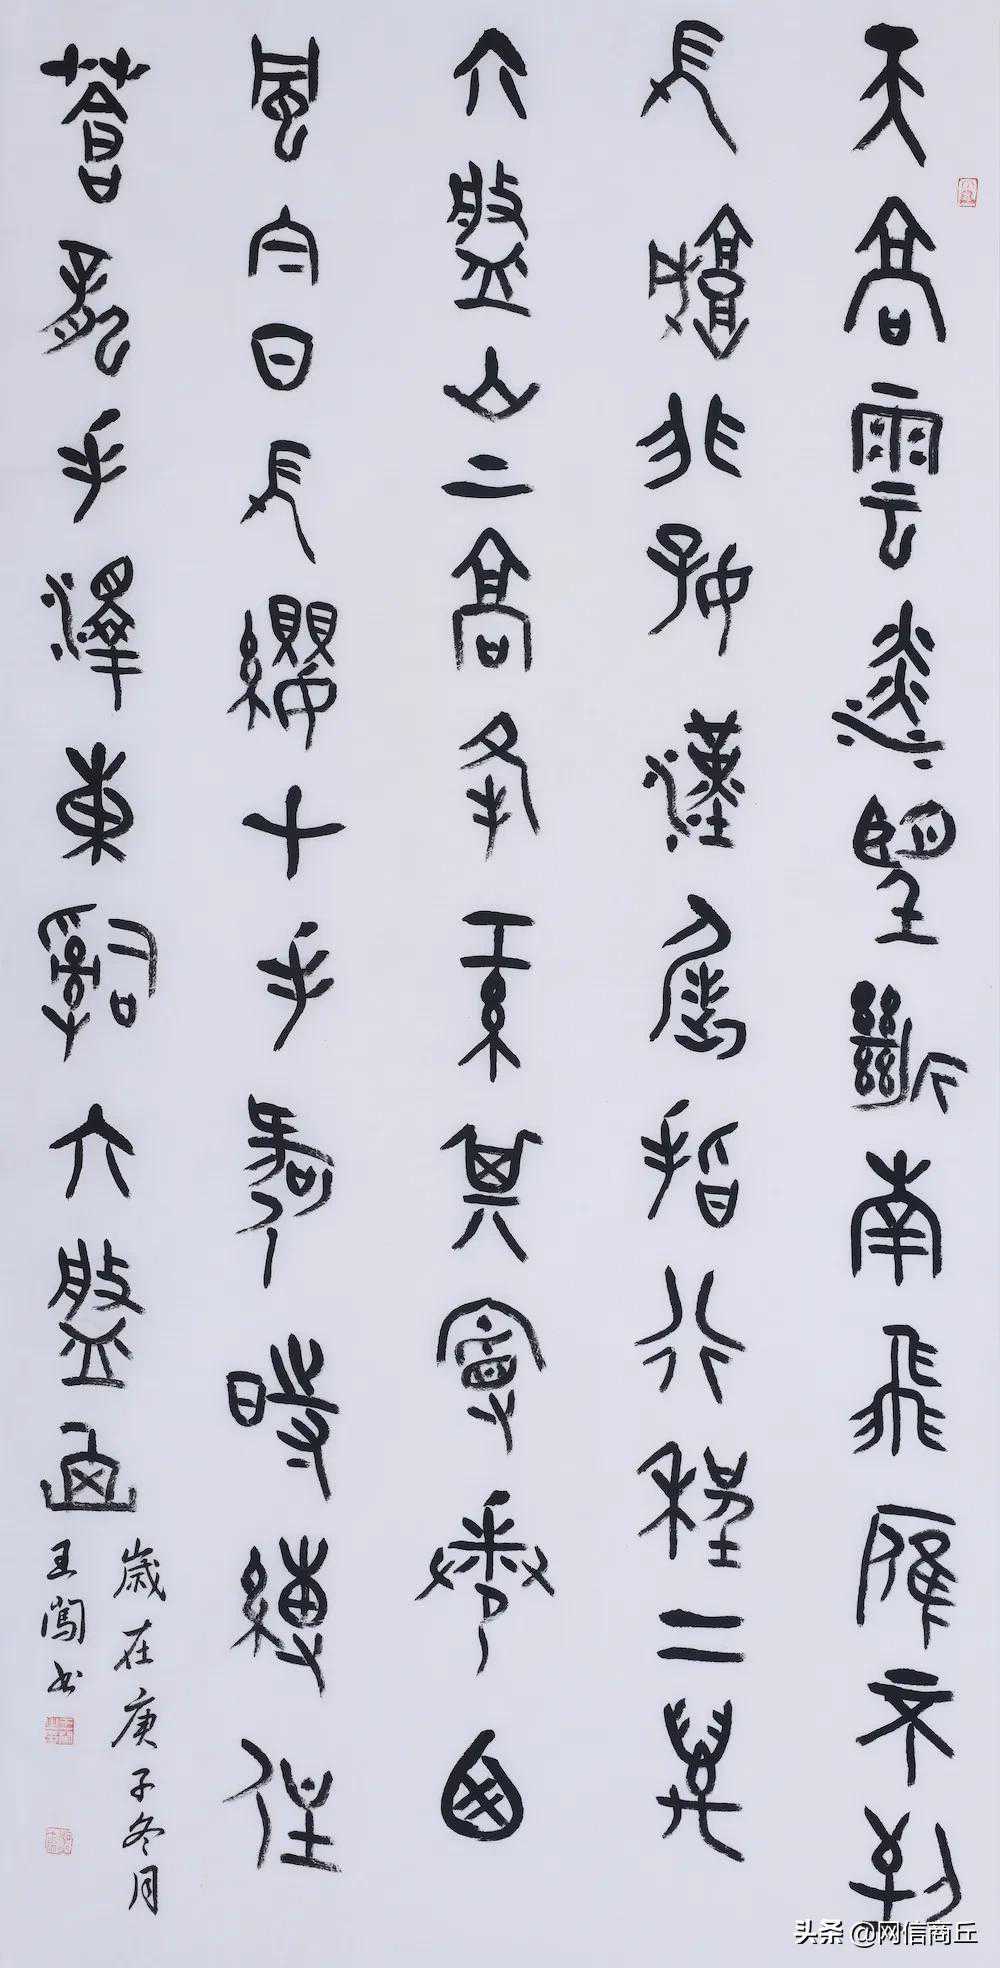 天高雲淡望斷南飛雁不到
長城非好漢屈指行程二萬
六盤山上高峰紅旗漫捲西
風今日長纓在手何時縛住
蒼龍毛澤東詞六盤
歲在庚子冬月
王闖書
头条 @网信商丘